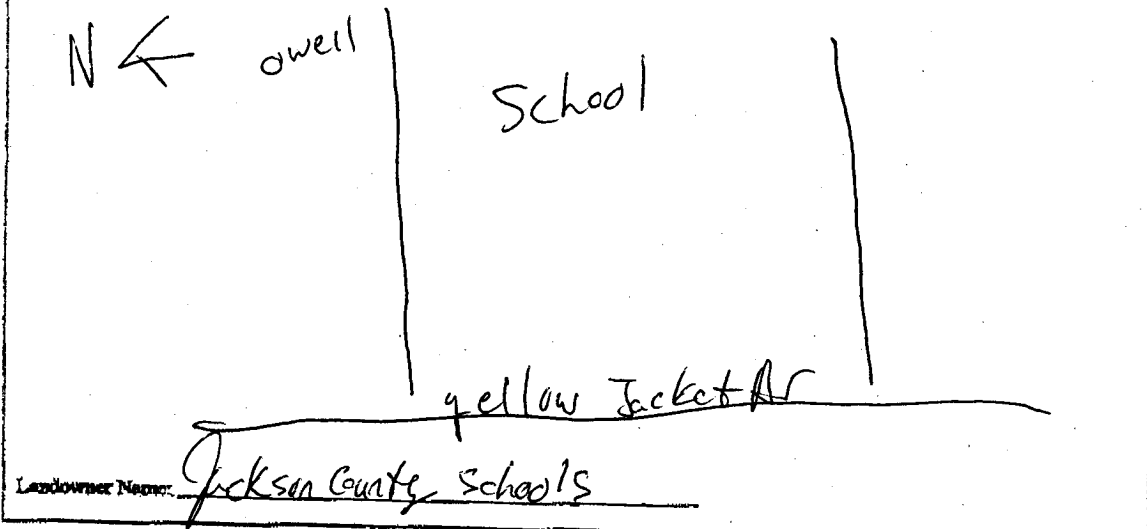 N owell
School
yellow Jacket Dr
Landowner Name: Jackson County Schools